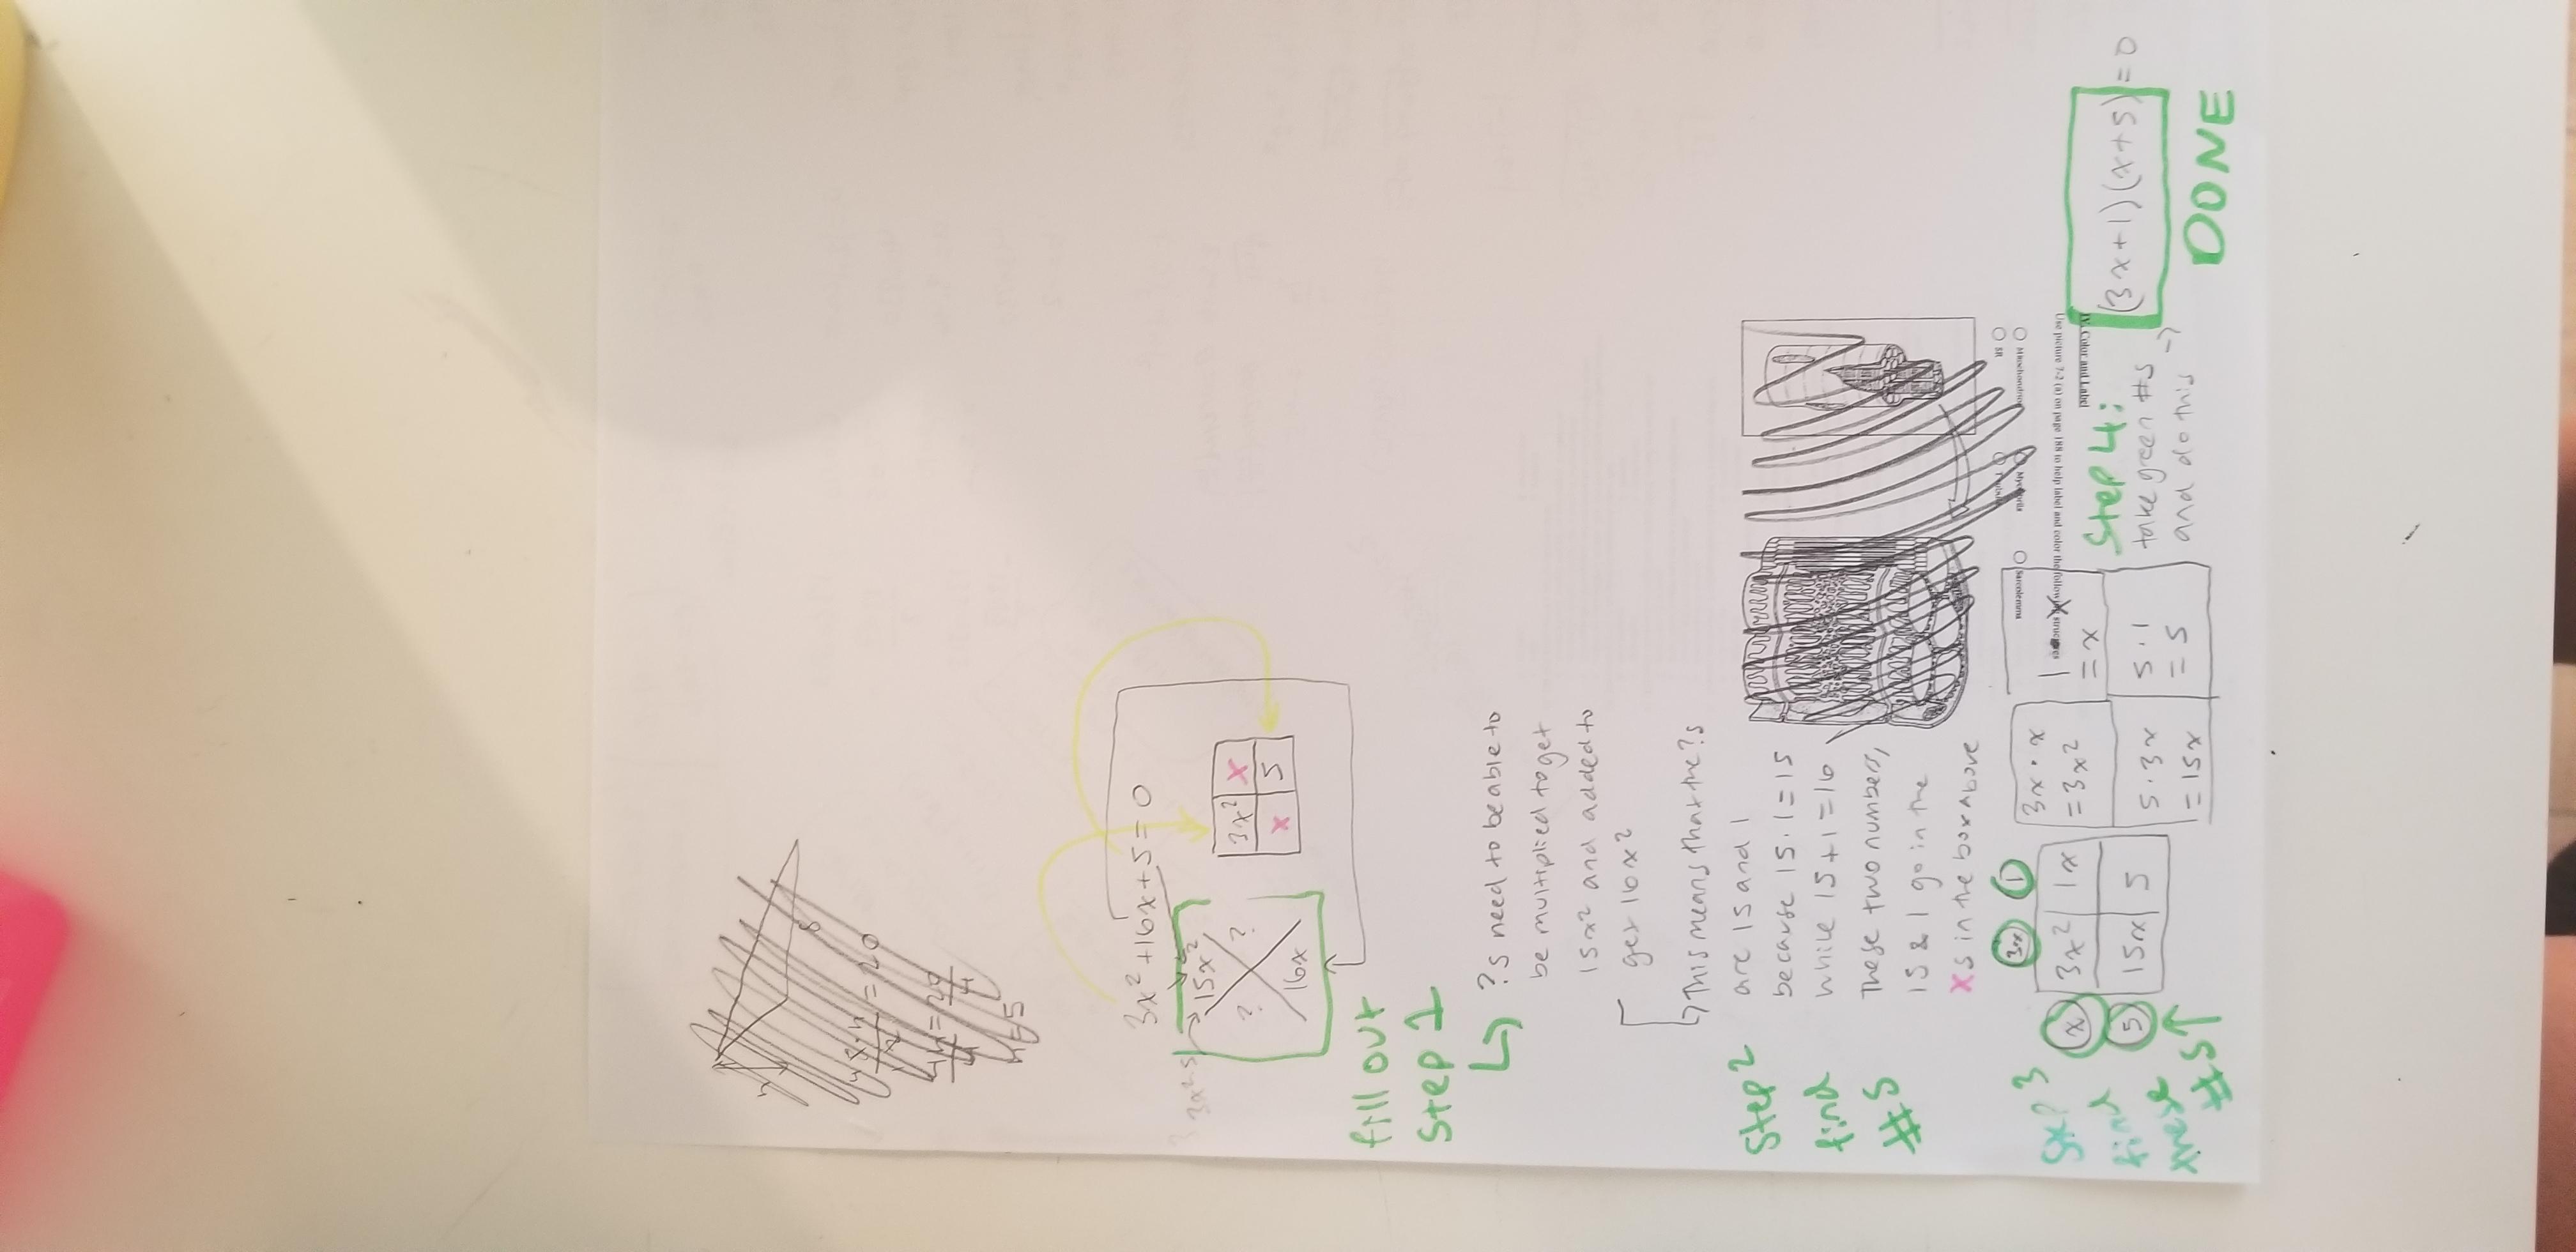 8
4
8·4
2
=20
4x=20
4 4
x=5
3x²+16x+5=0
3x²·5
15x²
? ?
16x
3x² x
x 5
fill out
Step 1
?s need to be able to
be multiplied to get
15x² and added to
get 16x²
Step 2
find
#s
This means that the ?s
are 15 and 1
because 15·1=15
while 15+1=16
These two numbers,
15 & 1 go in the
xs in the box above
Step 3
find
these
#s
3x 1
x 3x² 1x
5 15x 5
3x·x
=3x²
1·x
=x
5·3x
=15x
5·1
=5
Step 4:
take green #s
and do this
(3x+1)(x+5)=0
DONE
IV. Color and Label
Use picture 7-2 (a) on page 188 to help label and color the following structures
Mitochondrion
SR
Sarcolemma